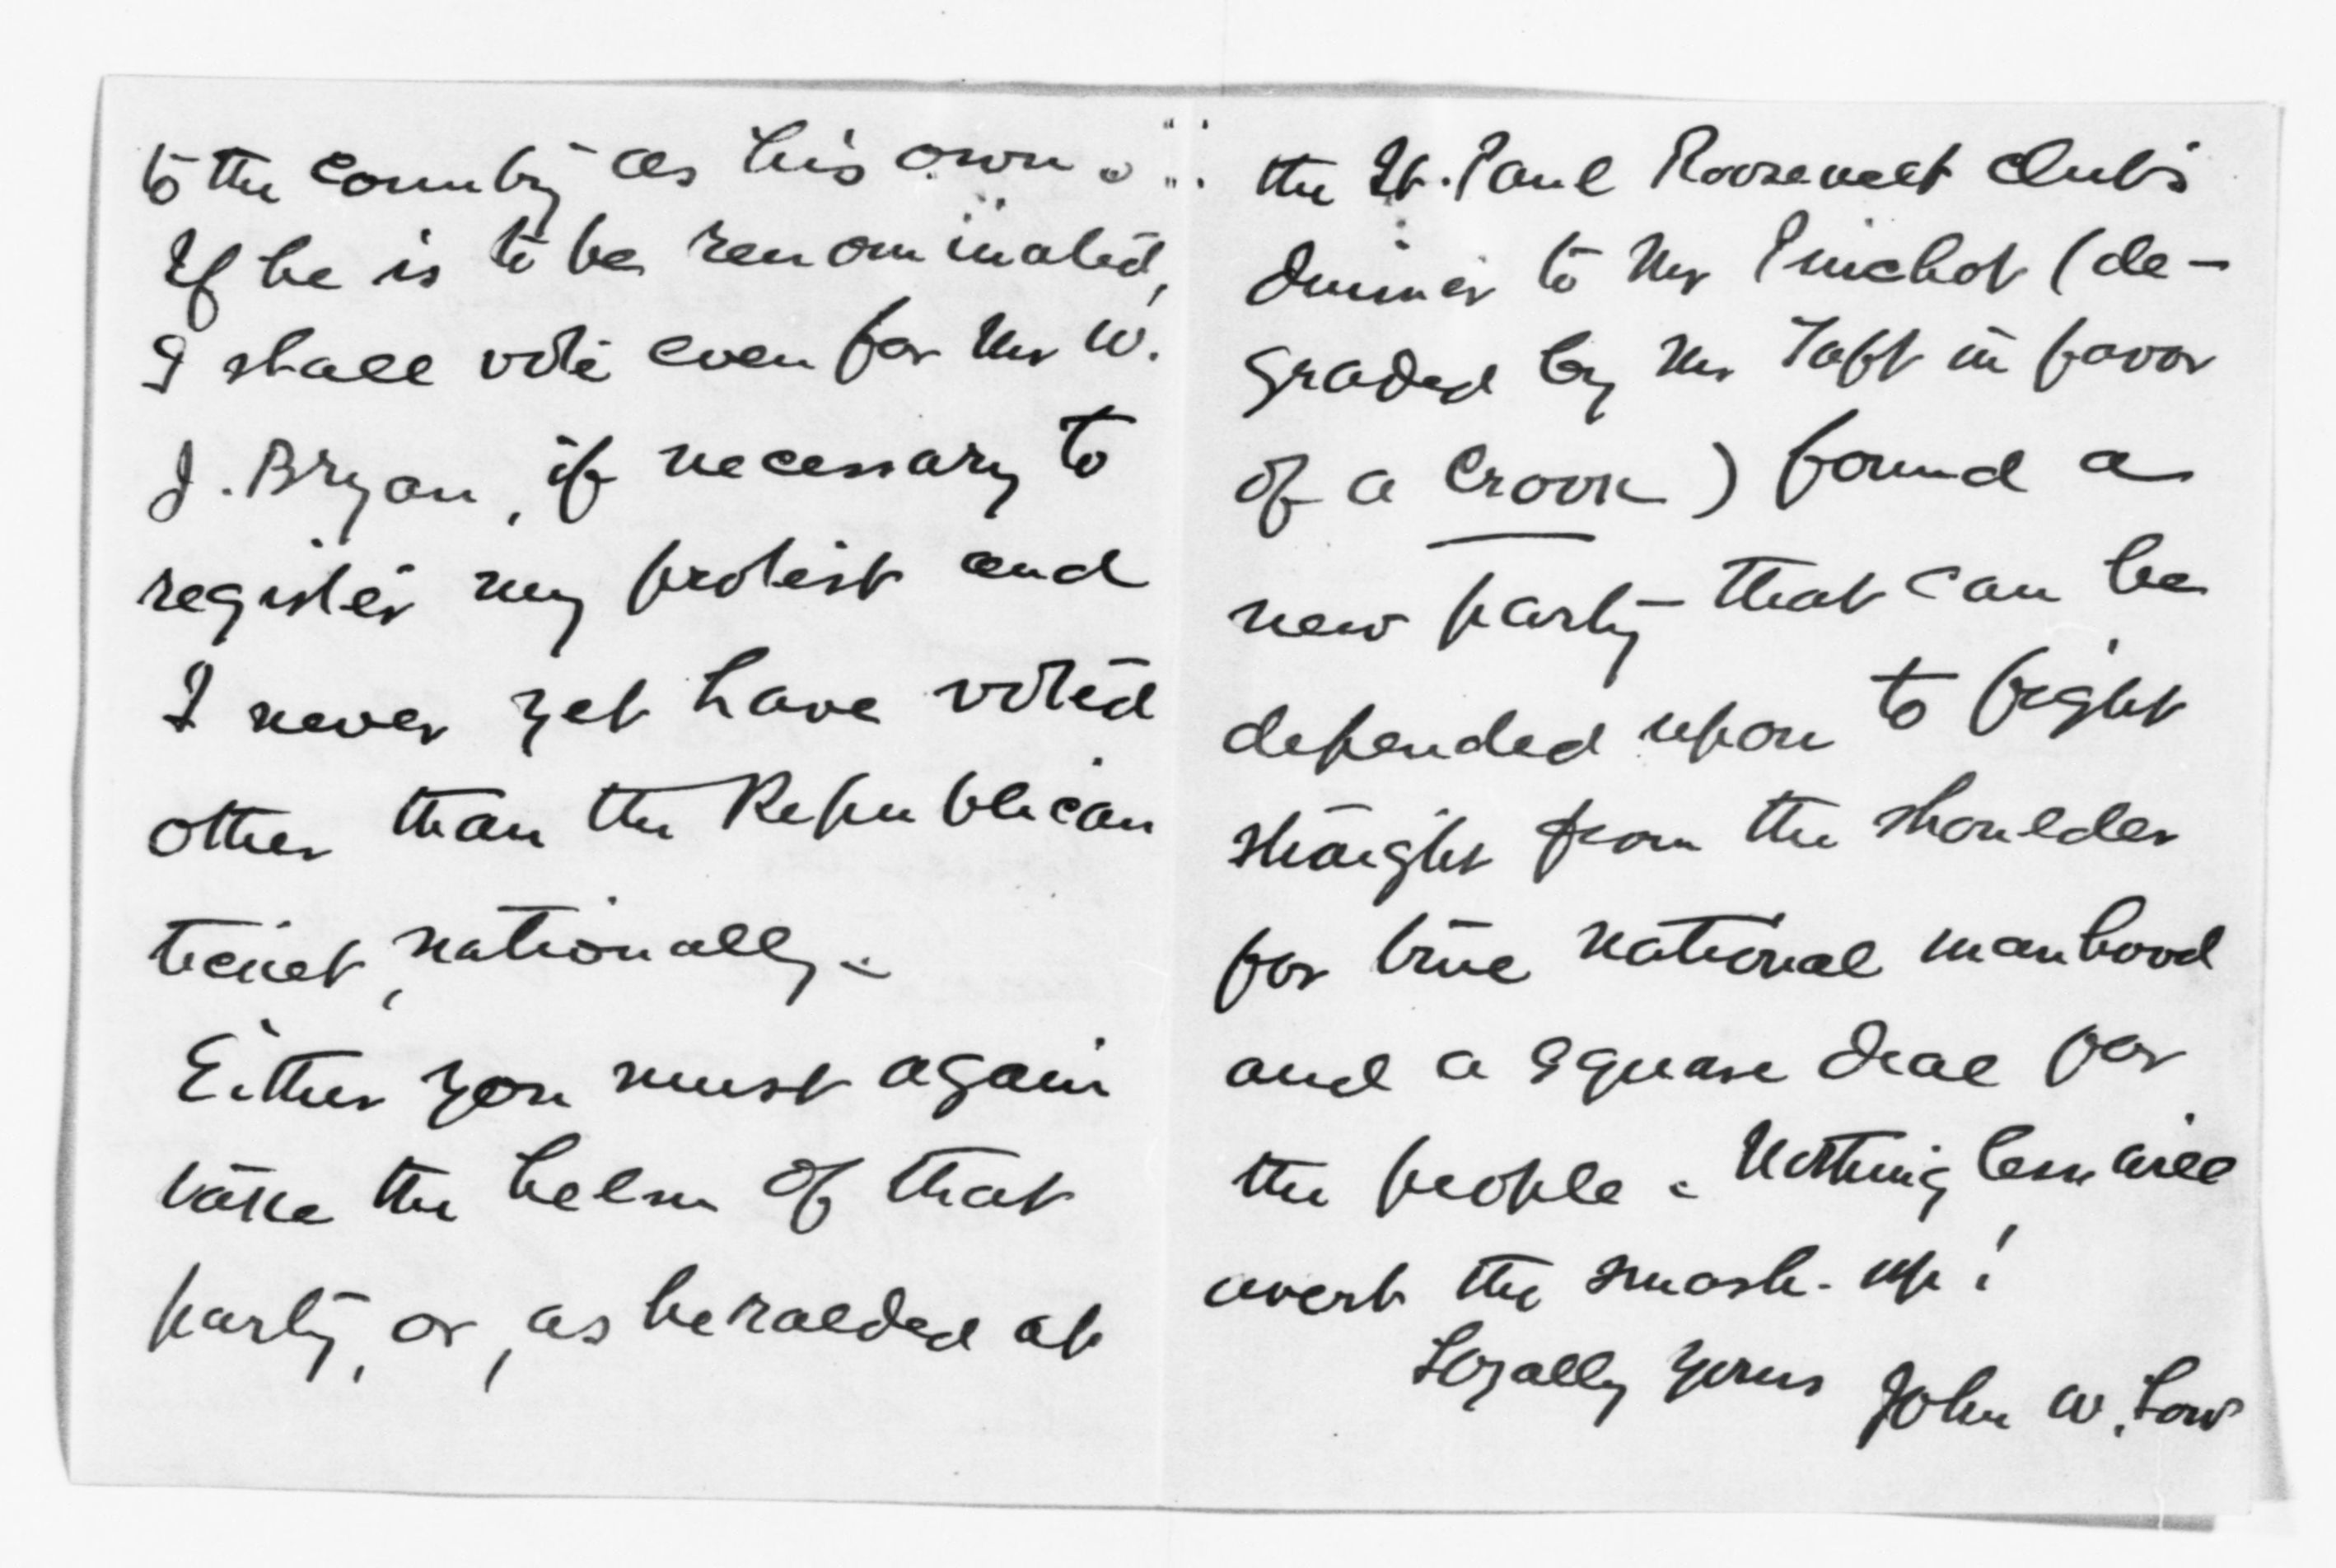 to the country as his own.
If he is to be renominated,
I shall vote even for Mr W.
J. Bryan, if necessary to
register my protest and
I never yet have voted
other than the Republican
ticket, nationally.
Either you must again
take the helm of that
party, or, as heralded at
the St. Paul Roosevelt Club's
dinner to Mr Pinchot (de-
graded by Mr Taft in favor
of a crook) found a
new party that can be
depended upon to fight
straight from the shoulder
for true national manhood
and a square deal for
the people. Nothing less will
avert the smash-up!
Loyally yours John W. Low